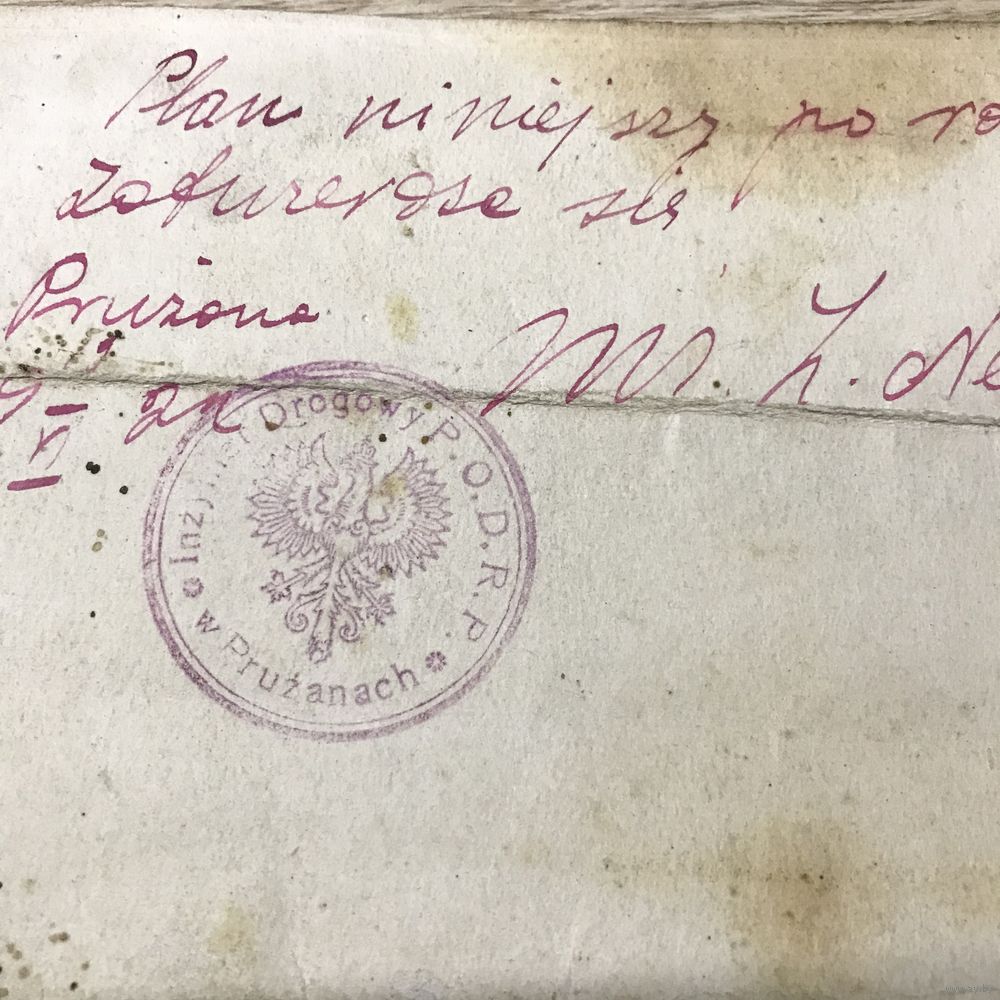 Plan niniejszy po
Zatwierdza się
Prużana
M. Z.
Inżynier Drogowy P.O.D.R.P.
w Prużanach